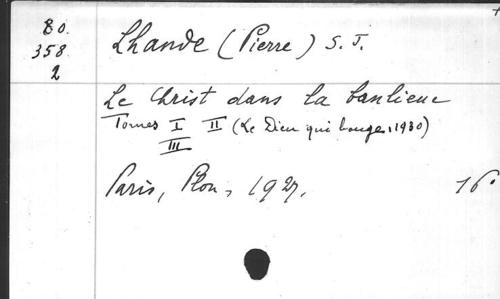 Bo.
358.
2
Lhande (Pierre) S. J.
Le Christ dans la banlieue
Tomes I II (Le Dieu qui bouge, 1930)
III
Paris, Plon, 1927. 16°